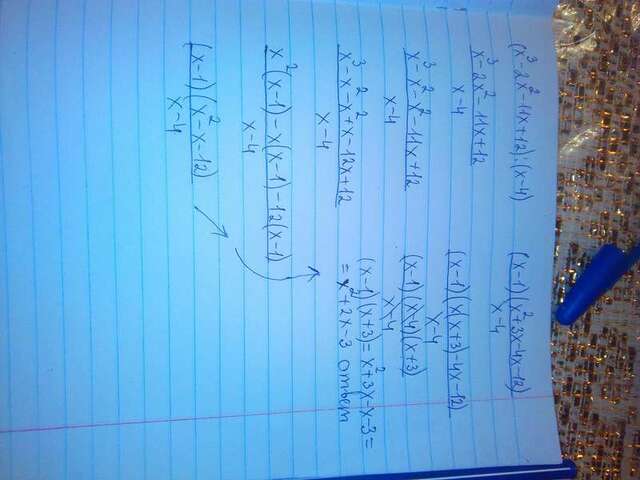 (x³-2x²-11x+12):(x-4)
x³-2x²-11x+12
x-4
x³-x²-x²-11x+12
x-4
x³-x²-x²+x-12x+12
x-4
x²(x-1)-x(x-1)-12(x-1)
x-4
(x-1)(x²-x-12)
x-4
(x-1)(x²+3x-4x-12)
x-4
(x-1)(x(x+3)-4x-12)
x-4
(x-1)(x-4)(x+3)
x-4
(x-1)(x+3)=x²+3x-x-3=
=x²+2x-3 ответ